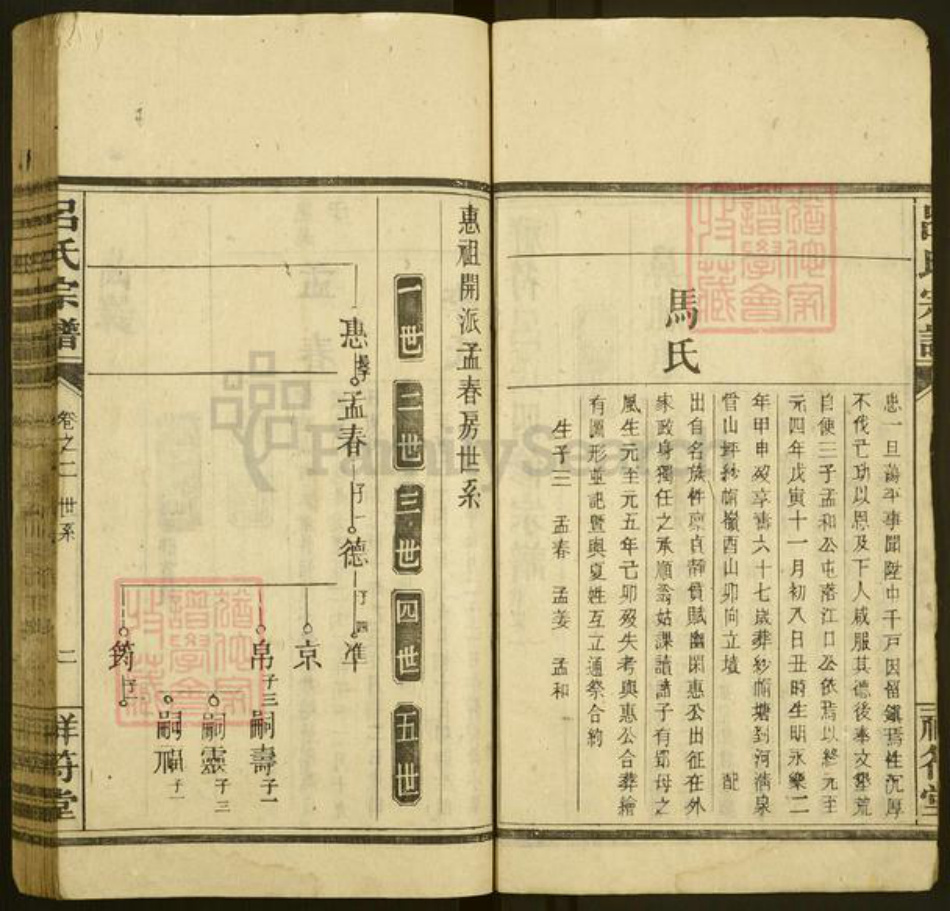 呂氏宗譜
忠一旦蕩平事聞陞中千戶因留鎮焉性沉厚
不伐己功以恩及下人咸服其德後奉文墾荒
自便三子孟和公屯落江口公依焉以終元至
元四年戊寅十一月初八日丑時生明永樂二
年甲申歿享壽六十七歲葬紗帽塘對河滴泉
管山坪紗帽嶺酉山卯向立墳 配
馬氏
出自名族性稟貞靜質賦幽閑惠公出征在外
家政身獨任之承順翁姑課讀諸子有鄧母之
風生元至元五年己卯歿失考與惠公合葬繪
有圖形並記暨與夏姓互立通祭合約
生子三 孟春 孟姜 孟和
祥符堂
惠祖開派孟春房世系
一世 二世 三世 四世 五世
惠
孟春 子一
德 子四
準
京
帛 子三
嗣壽 子一
嗣靈 子三
嗣福 子一
筠
呂氏宗譜
卷之二 世系
二
祥符堂
FamilySearch